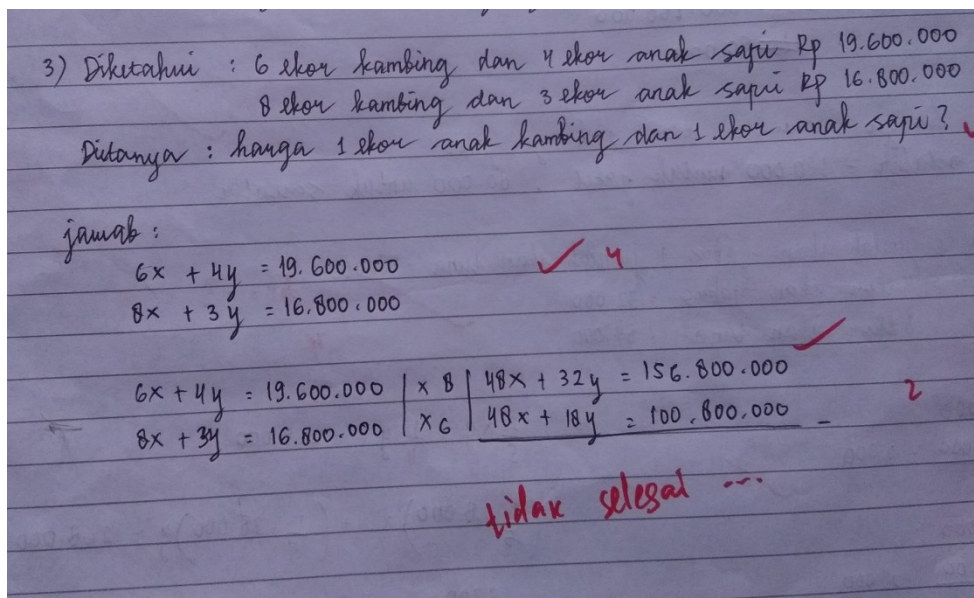 3) Diketahui : 6 ekor kambing dan 4 ekor anak sapi Rp 19.600.000
8 ekor kambing dan 3 ekor anak sapi Rp 16.800.000
Ditanya : harga 1 ekor anak kambing dan 1 ekor anak sapi?
jawab :
6x + 4y = 19.600.000 ✓ 4
8x + 3y = 16.800.000
6x + 4y = 19.600.000 | x 8 | 48x + 32y = 156.800.000 ✓
8x + 3y = 16.800.000 | x 6 | 48x + 18y = 100.800.000 - 2
tidak selesai ...